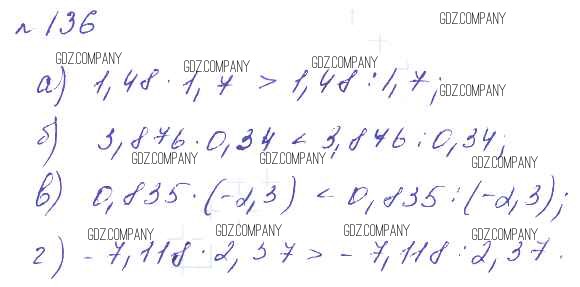 № 136
GDZ.COMPANY
GDZ.COMPANY GDZ.COMPANY GDZ.COMPANY
а) 1,48 · 1,7 > 1,48 : 1,7; GDZ.COMPANY
б) 3,876 · 0,34 < 3,876 : 0,34;
GDZ.COMPANY GDZ.COMPANY GDZ.COMPANY
в) 0,835 · (-2,3) < 0,835 : (-2,3);
GDZ.COMPANY GDZ.COMPANY GDZ.COMPANY GDZ.COMPANY
г) - 7,118 · 2,37 > - 7,118 : 2,37.